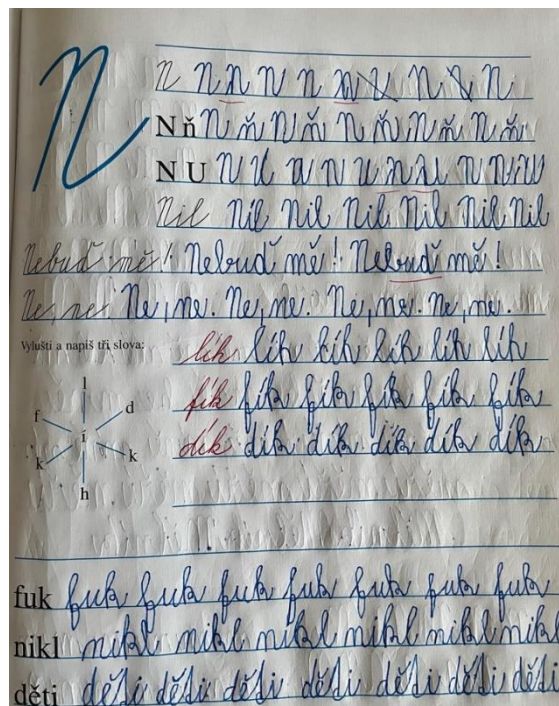 N
N N n N n n U N N N
N ň N ň N ň N ň N ň N ň
N U N U U N U N U N N U
Nil Nil Nil Nil Nil Nil Nil
Nebuď mě! Nebuď mě! Nebuď mě!
Ne, ne. Ne, ne. Ne, ne. Ne, ne. Ne, ne.
Vylušti a napiš tři slova:
lík lík lík lík lík lík
l
f d
i
k k
h
fík fík fík fík fík fík fík
dík dík dík dík dík dík
fuk fuk fuk fuk fuk fuk fuk fuk
nikl nikl nikl nikl nikl nikl nikl
děti děti děti děti děti děti děti děti